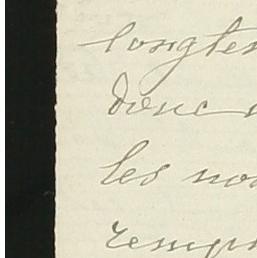 longte
donc
les no
remp